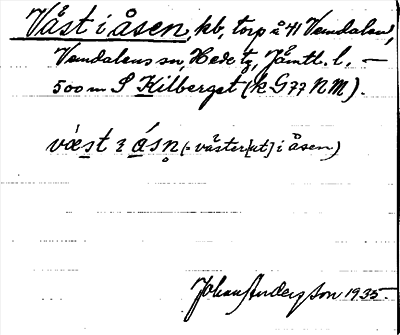 Våst i åsen, kb, torp å 41 Vemdalen,
Vemdalens sn, Hede tg, Jämtl. l. —
500 m S Kilberget (k G77 NM).
væst ɩ åsn̥ (= väster[ut] i åsen)
Johan Anderson 1935.